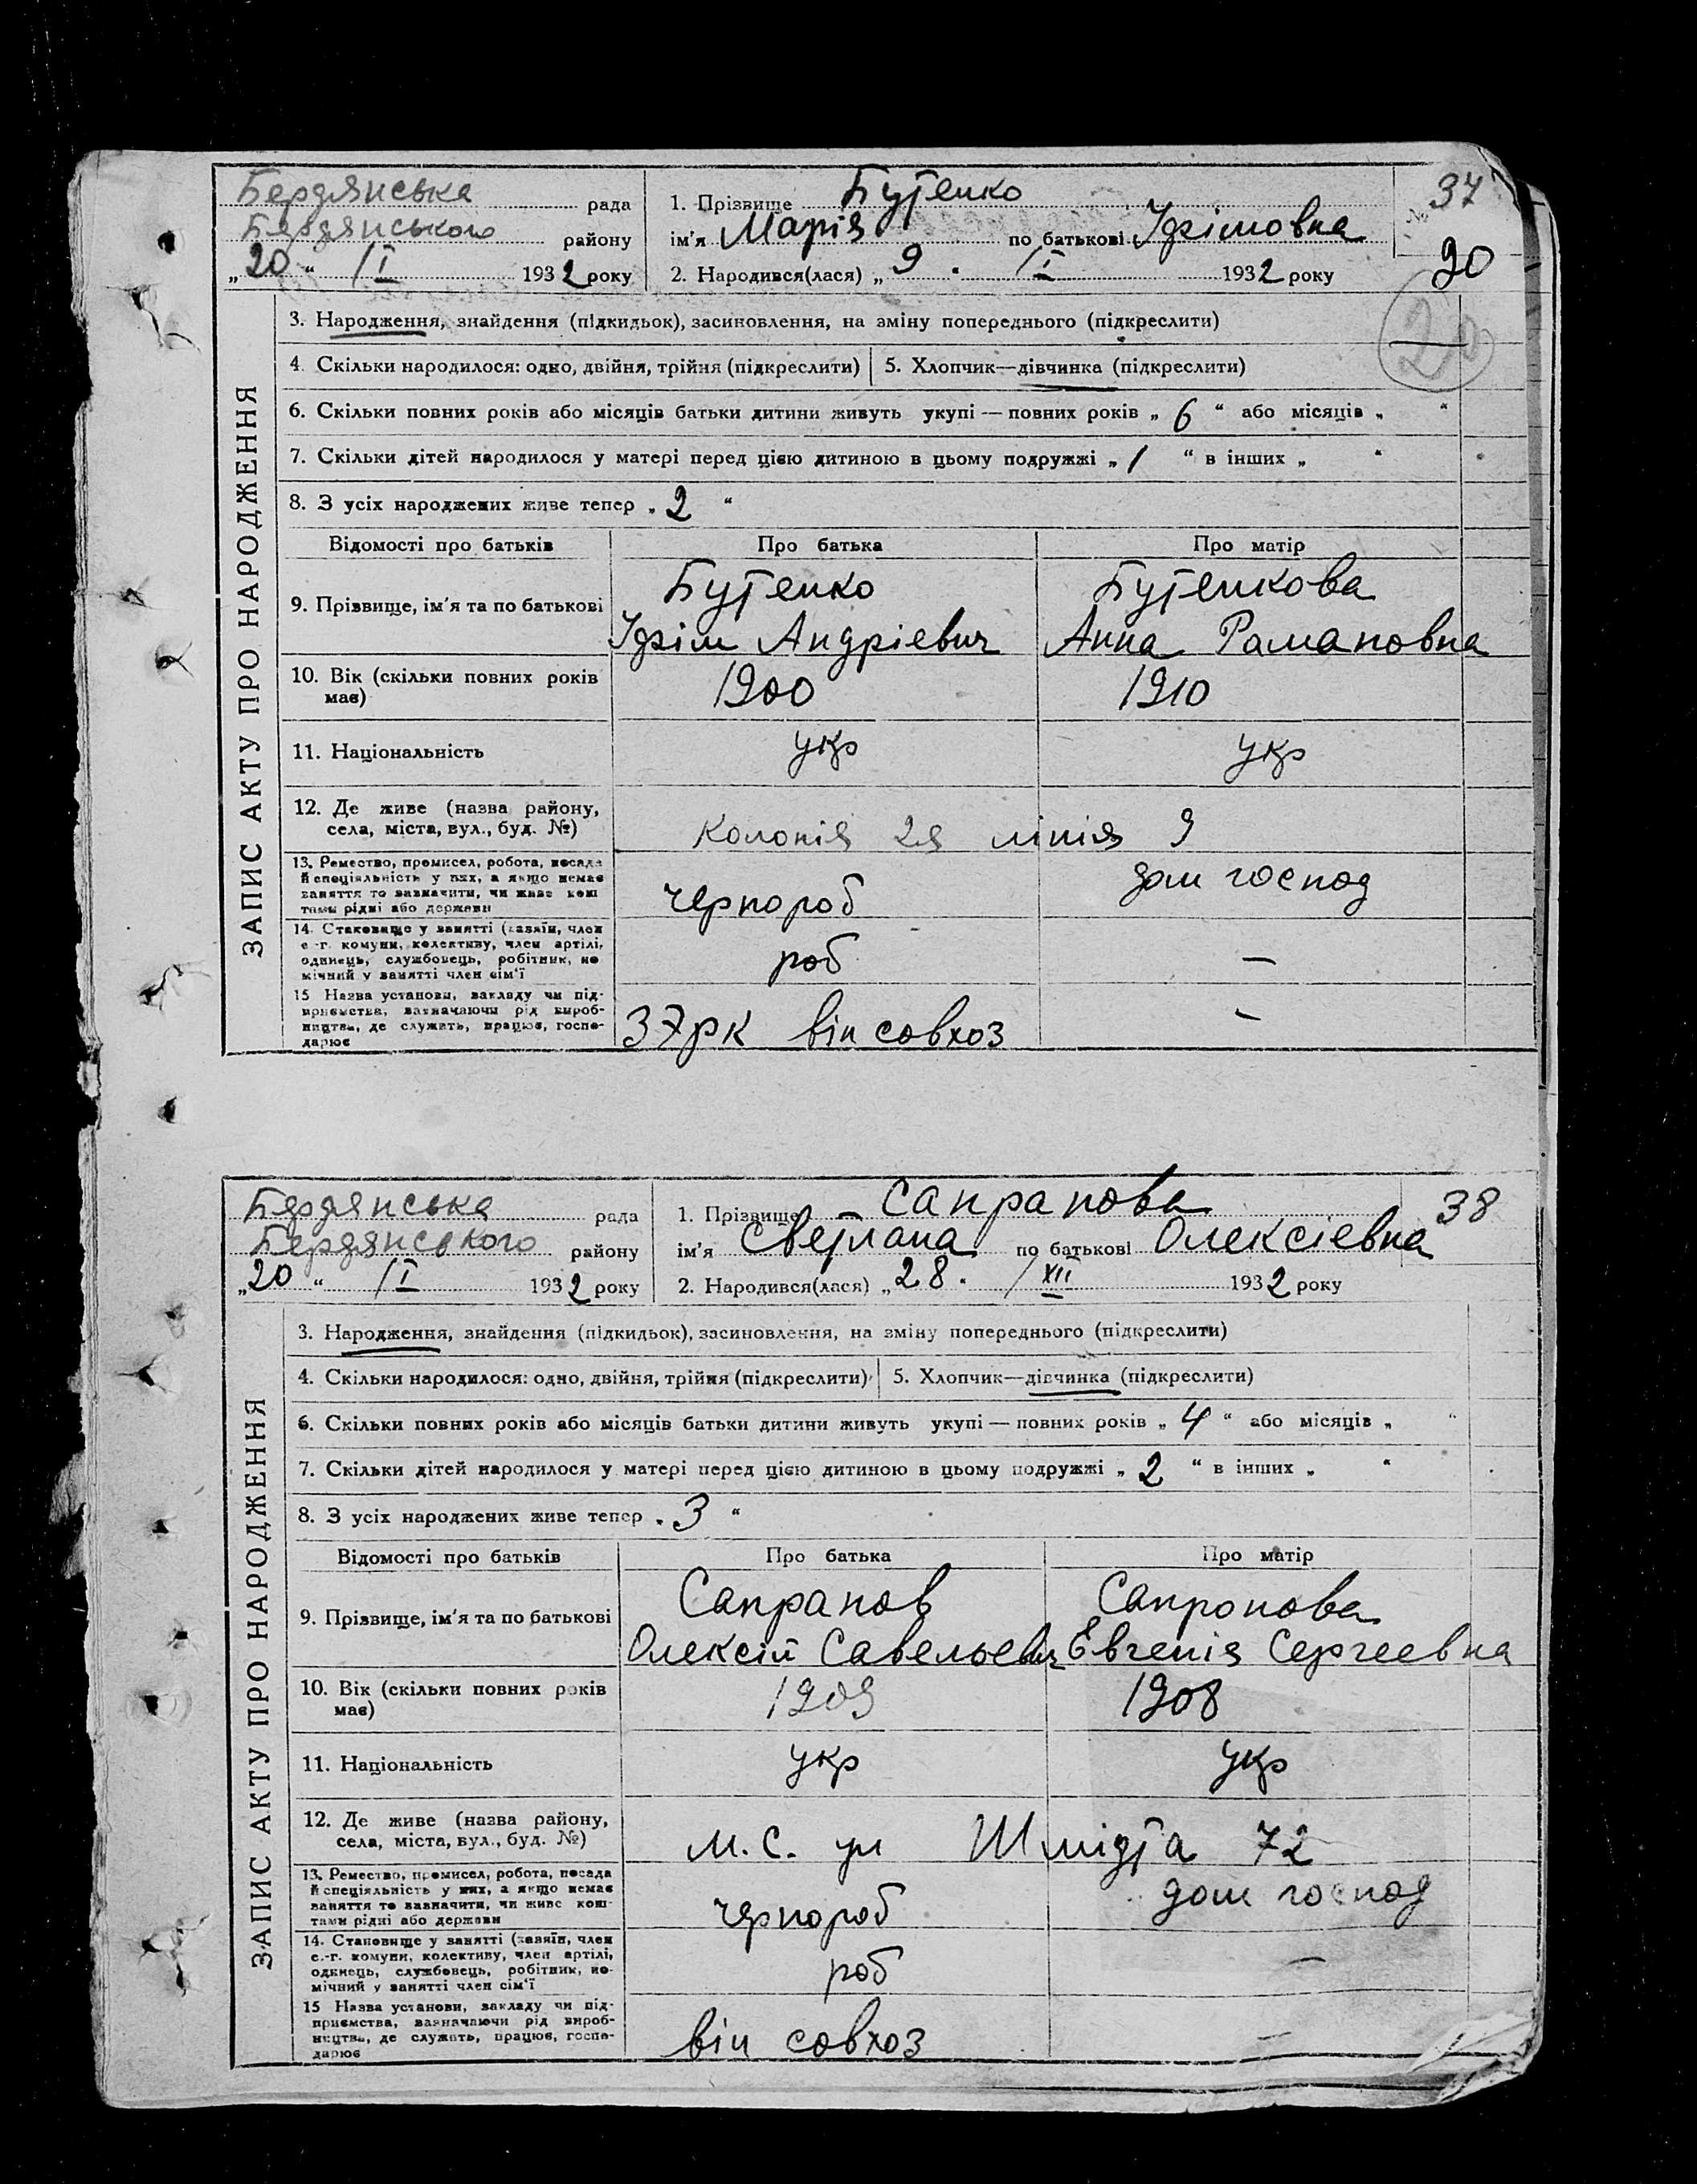 Бердянська рада
Бердянського району
„20“ /I 1932 року
1. Прізвище Бутенко
ім'я Марія по батькові Юхімовна
2. Народився(лася) „9. /I 1932 року
37
20
20
ЗАПИС АКТУ ПРО НАРОДЖЕННЯ
3. Народження, знайдення (підкидьок), засиновлення, на зміну попереднього (підкреслити)
4. Скільки народилося: одно, двійня, трійня (підкреслити) 5. Хлопчик—дівчинка (підкреслити)
6. Скільки повних років або місяців батьки дитини живуть укупі — повних років „ 6 “ або місяців „ “
7. Скільки дітей народилося у матері перед цією дитиною в цьому подружжі „ 1 “ в інших „ “
8. З усіх народжених живе тепер „ 2 “
Відомості про батьків Про батька Про матір
9. Прізвище, ім'я та по батькові
Бутенко Бутенкова
Андріевич Анна Рамановна
10. Вік (скільки повних років має) 1900 1910
11. Національність укр укр
12. Де живе (назва району, села, міста, вул., буд. №) Колонія 2я лінія 9
13. Ремество, промисел, робота, посада
й спеціяльність у них, а якщо немає
заняття то зазначити, чи живе кош
тами рідні або держави
чернороб дом господ
14. Становище у занятті (хазяїн, член
с.-г. комуни, колективу, член артілі,
одинець, службовець, робітник, по
мічний у занятті член сім'ї
роб —
15 Назва установи, закладу чи під-
приємства, зазначаючи рід вироб-
ництва, де служить, працює, госпо-
дарює
ЗТРК він совхоз —
Бердянська рада
Бердянського району
„20“ /I 1932 року
1. Прізвище Сапранова
ім'я Светлана по батькові Олексіевна
2. Народився(лася) „28. /XII 1932 року
38
ЗАПИС АКТУ ПРО НАРОДЖЕННЯ
3. Народження, знайдення (підкидьок), засиновлення, на зміну попереднього (підкреслити)
4. Скільки народилося: одно, двійня, трійня (підкреслити) 5. Хлопчик—дівчинка (підкреслити)
6. Скільки повних років або місяців батьки дитини живуть укупі — повних років „ 4 “ або місяців „ “
7. Скільки дітей народилося у матері перед цією дитиною в цьому подружжі „ 2 “ в інших „ “
8. З усіх народжених живе тепер „ 3 “
Відомості про батьків Про батька Про матір
9. Прізвище, ім'я та по батькові
Сапранов Сапронова
Олексій Савельевич Евгенія Сергеевна
10. Вік (скільки повних років має) 1909 1908
11. Національність укр укр
12. Де живе (назва району, села, міста, вул., буд. №) М. С. ул Шмідта 72
13. Ремество, промисел, робота, посада
й спеціяльність у них, а якщо немає
заняття то зазначити, чи живе кош-
тами рідні або держави
чернороб дом господ
14. Становище у занятті (хазяїн, член
с.-г. комуни, колективу, член артілі,
одинець, службовець, робітник, по-
мічний у занятті член сім'ї
роб —
15 Назва установи, закладу чи під-
приємства, зазначаючи рід вироб-
ництва, де служить, працює, госпо-
дарює
він совхоз —